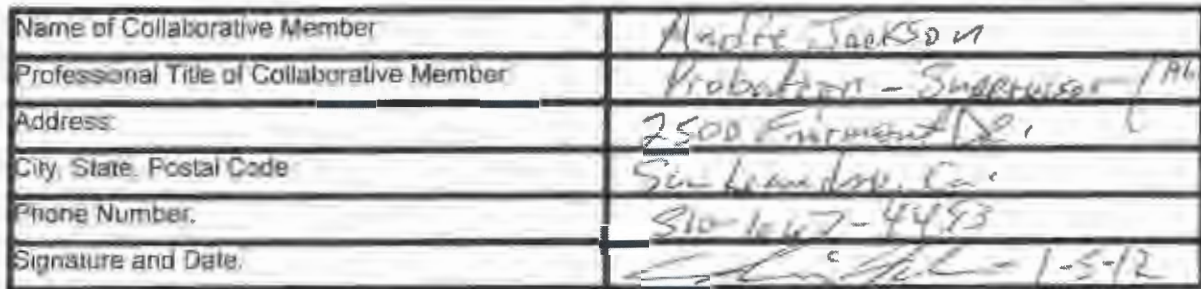 Name of Collaborative Member Andre Jackson
Professional Title of Collaborative Member Probation - Supervisor /
Address: 2500 Fairmont Dr.
City, State, Postal Code San Leandro, Ca.
Phone Number. 510-667-4493
Signature and Date. 1-5-12